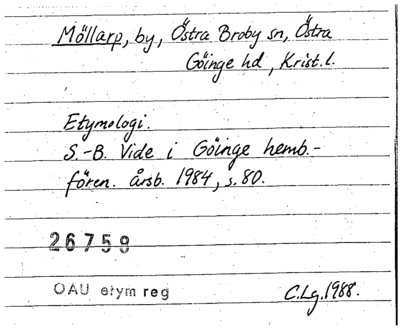 Möllarp, by, Östra Broby sn, Östra
Göinge hd, Krist. l.
Etymologi.
S.-B. Vide i Göinge hemb.-
fören. årsb. 1984, s. 80.
26759
OAU etym reg
C.Lg. 1988.